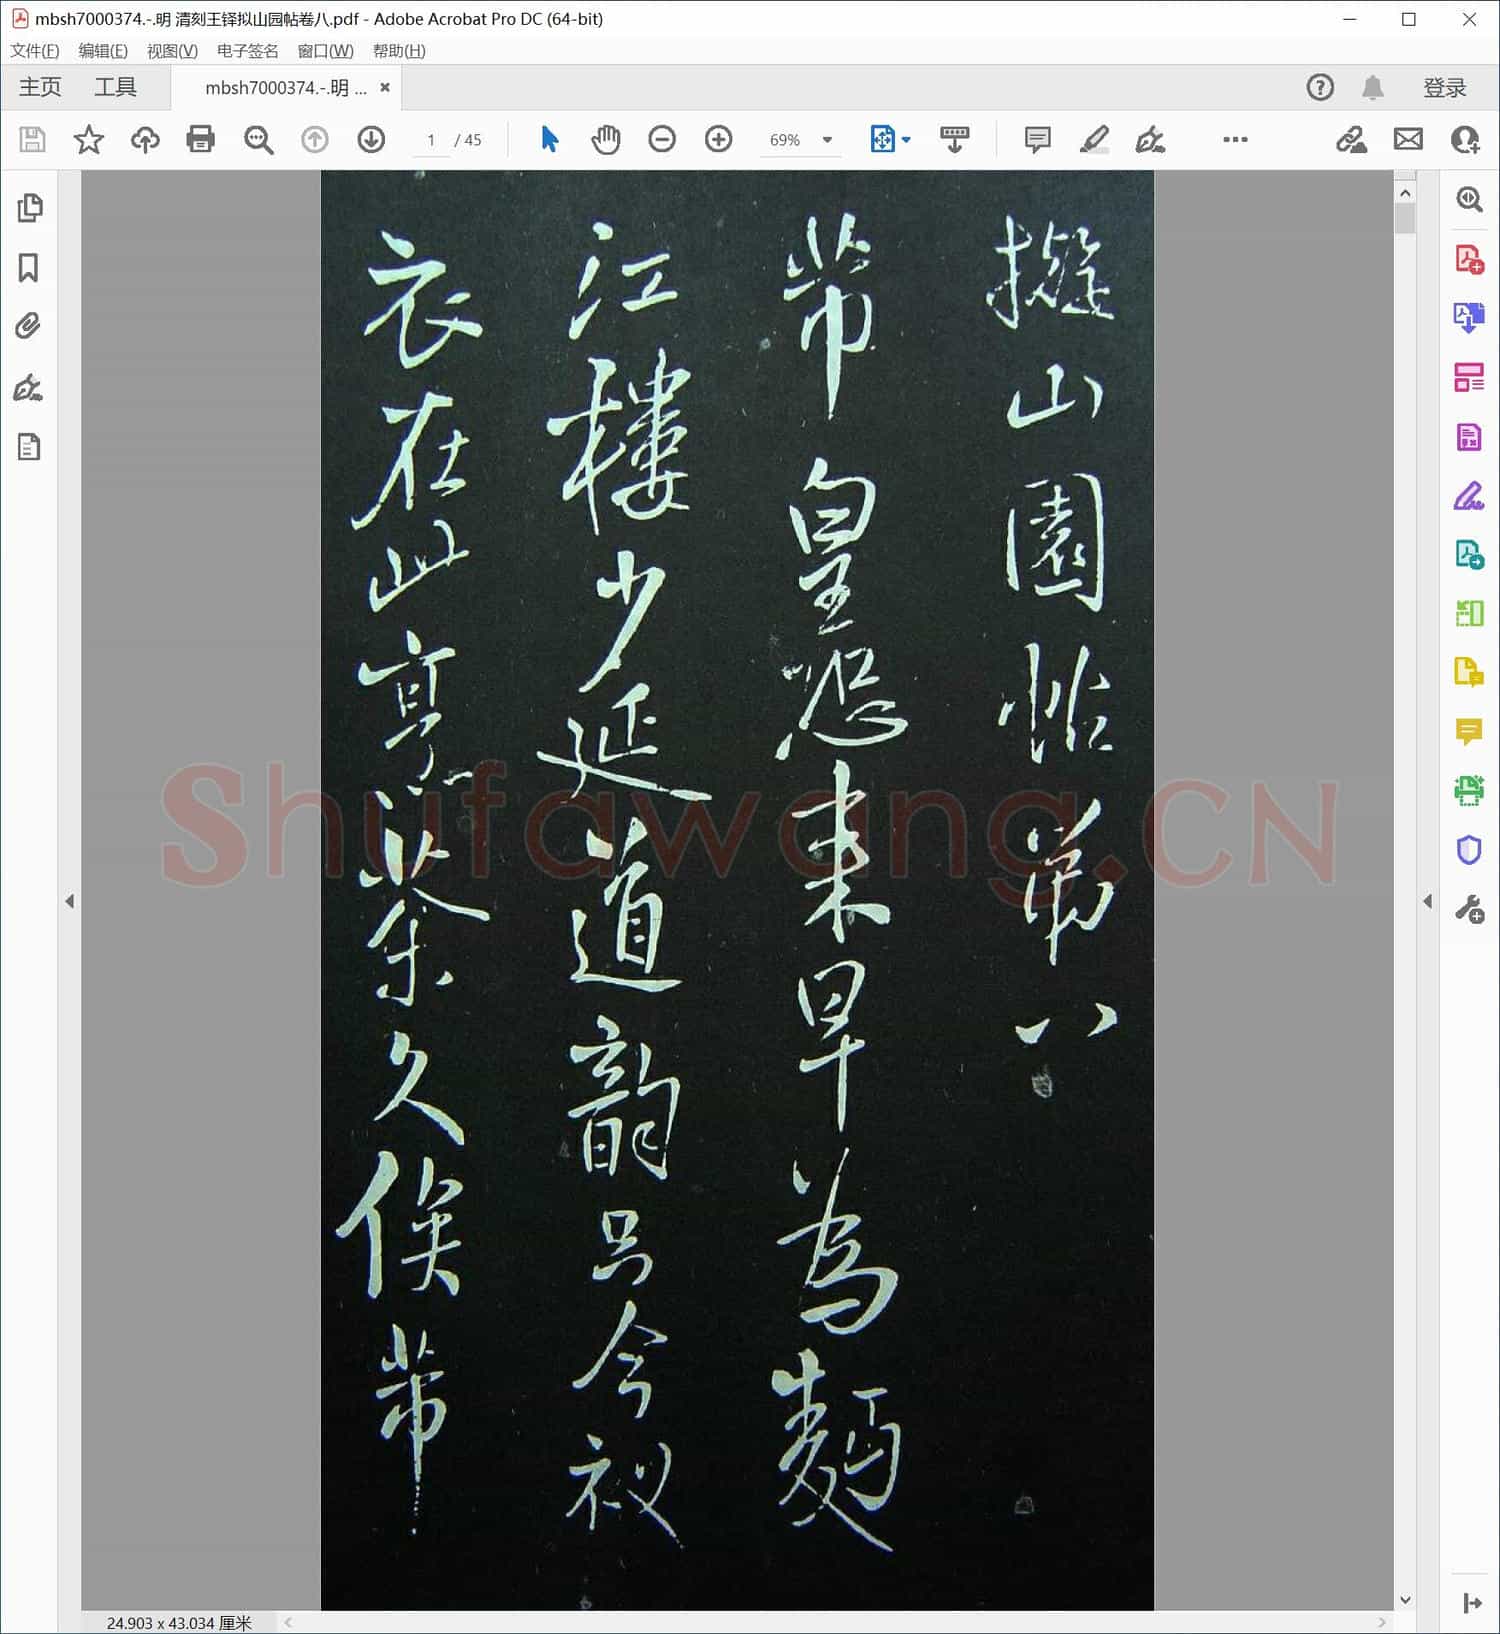 mbsh7000374.-.明 清刻王铎拟山园帖卷八.pdf - Adobe Acrobat Pro DC (64-bit)
文件(F) 编辑(E) 视图(V) 电子签名 窗口(W) 帮助(H)
主页 工具 mbsh7000374.-.明 ... 登录
1 / 45 69%
擬山園帖第八
芾皇恐來早為麵
江樓少延道韻只今衩
衣在此寧祭久俟芾
Shufawang.CN
24.903 x 43.034 厘米